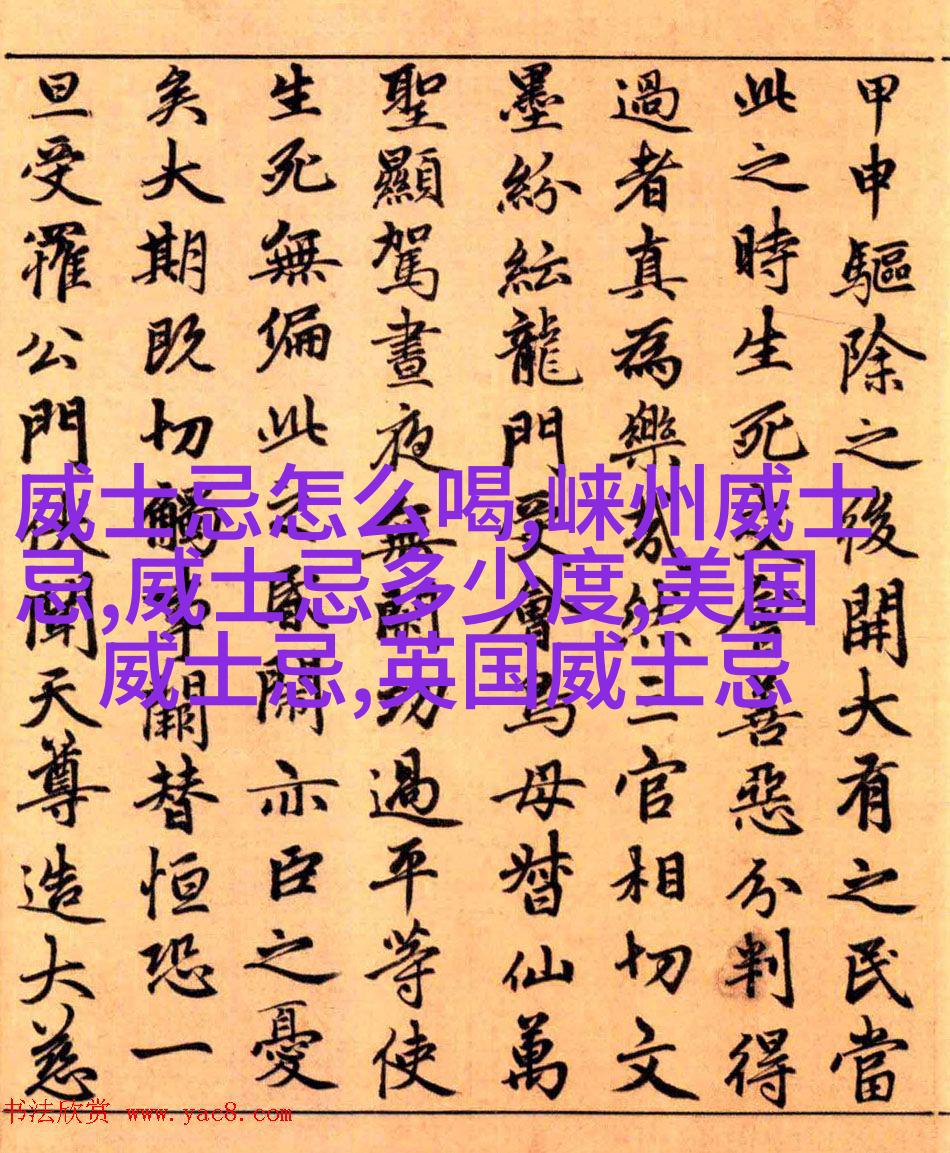 甲申驅除之後開大有之民當
此之時生死交會善惡分判得
過者真為樂然三官相切文
墨紛紜龍門受會母督仙萬
聖顯駕晝夜無閑功過平等使
生死無偏此之亦臣之憂
矣大期既切觸事闕替恒恐一
旦受罹公門伏聞天尊造大慈
威士忌怎么喝,崃州威士
忌,威士忌多少度,美国
威士忌,英国威士忌
书法欣赏 www.yac8.com